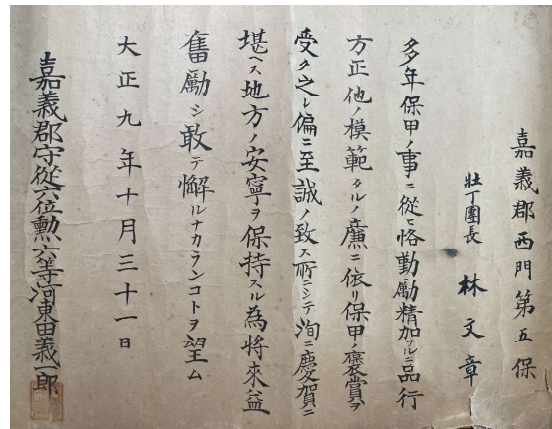 嘉義郡西門第五保
壯丁團長 林文章
多年保甲ノ事ニ從ヒ恪勤勵精加フルニ品行
方正他ノ模範タルノ廉ニ依リ保甲ノ褒賞ヲ
受ク之レ偏ニ至誠ノ致ス所ニシテ洵ニ慶賀ニ
堪ヘス地方ノ安寧ヲ保持スル為將來益
奮勵シ敢テ懈ルナカランコトヲ望ム
大正九年十月三十一日
嘉義郡守從六位勲六等河東田義一郎